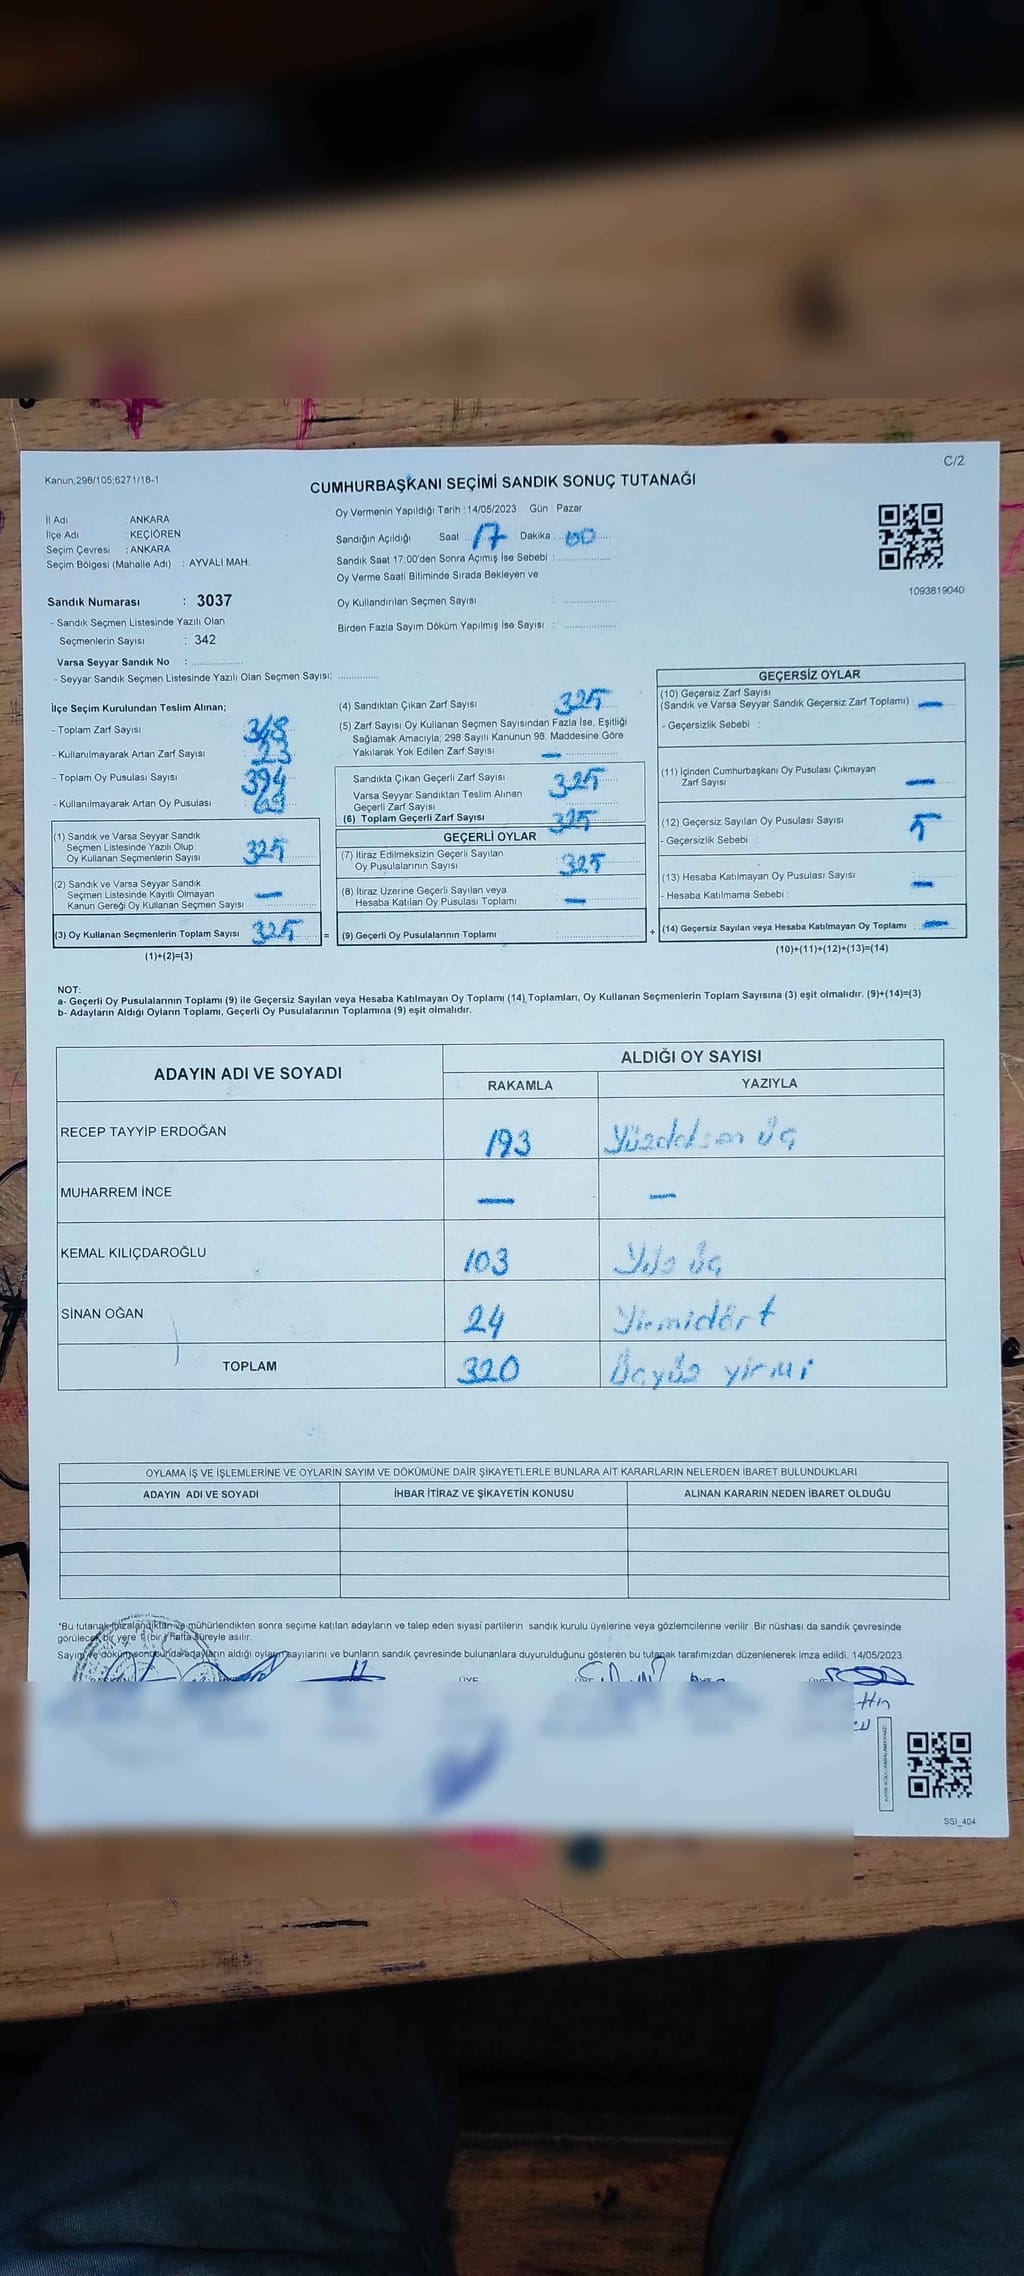 C/2
Kanun,298/105;6271/18-1
CUMHURBAŞKANI SEÇİMİ SANDIK SONUÇ TUTANAĞI
İl Adı : ANKARA
İlçe Adı : KEÇİÖREN
Seçim Çevresi : ANKARA
Seçim Bölgesi (Mahalle Adı) : AYVALI MAH.
Oy Vermenin Yapıldığı Tarih :14/05/2023 Gün Pazar
Sandığın Açıldığı Saat : 17 Dakika : 00
Sandık Saat 17:00'den Sonra Açımış İse Sebebi :
Oy Verme Saati Bitiminde Sırada Bekleyen ve
Oy Kullandırılan Seçmen Sayısı :
Birden Fazla Sayım Döküm Yapılmış İse Sayısı :
1093819040
Sandık Numarası : 3037
- Sandık Seçmen Listesinde Yazılı Olan
Seçmenlerin Sayısı : 342
Varsa Seyyar Sandık No :
- Seyyar Sandık Seçmen Listesinde Yazılı Olan Seçmen Sayısı:
İlçe Seçim Kurulundan Teslim Alınan;
- Toplam Zarf Sayısı
- Kullanılmayarak Artan Zarf Sayısı
- Toplam Oy Pusulası Sayısı 394
- Kullanılmayarak Artan Oy Pusulası 69
(1) Sandık ve Varsa Seyyar Sandık
Seçmen Listesinde Yazılı Olup
Oy Kullanan Seçmenlerin Sayısı 325
(2) Sandık ve Varsa Seyyar Sandık
Seçmen Listesinde Kayıtlı Olmayan
Kanun Gereği Oy Kullanan Seçmen Sayısı —
(3) Oy Kullanan Seçmenlerin Toplam Sayısı 325 =
(1)+(2)=(3)
(4) Sandıktan Çıkan Zarf Sayısı 325
(5) Zarf Sayısı Oy Kullanan Seçmen Sayısından Fazla İse, Eşitliği
Sağlamak Amacıyla; 298 Sayılı Kanunun 98. Maddesine Göre
Yakılarak Yok Edilen Zarf Sayısı —
Sandıkta Çıkan Geçerli Zarf Sayısı 325
Varsa Seyyar Sandıktan Teslim Alınan
Geçerli Zarf Sayısı
(6) Toplam Geçerli Zarf Sayısı 325
GEÇERLİ OYLAR
(7) İtiraz Edilmeksizin Geçerli Sayılan
Oy Pusulalarının Sayısı 325
(8) İtiraz Üzerine Geçerli Sayılan veya
Hesaba Katılan Oy Pusulası Toplamı : —
(9) Geçerli Oy Pusulalarının Toplamı : +
GEÇERSİZ OYLAR
(10) Geçersiz Zarf Sayısı
(Sandık ve Varsa Seyyar Sandık Geçersiz Zarf Toplamı) : —
- Geçersizlik Sebebi :
(11) İçinden Cumhurbaşkanı Oy Pusulası Çıkmayan
Zarf Sayısı —
(12) Geçersiz Sayılan Oy Pusulası Sayısı 5
- Geçersizlik Sebebi :
(13) Hesaba Katılmayan Oy Pusulası Sayısı —
- Hesaba Katılmama Sebebi :
(14) Geçersiz Sayılan veya Hesaba Katılmayan Oy Toplamı : —
(10)+(11)+(12)+(13)=(14)
NOT:
a- Geçerli Oy Pusulalarının Toplamı (9) ile Geçersiz Sayılan veya Hesaba Katılmayan Oy Toplamı (14) Toplamları, Oy Kullanan Seçmenlerin Toplam Sayısına (3) eşit olmalıdır. (9)+(14)=(3)
b- Adayların Aldığı Oyların Toplamı, Geçerli Oy Pusulalarının Toplamına (9) eşit olmalıdır.
ADAYIN ADI VE SOYADI ALDIĞI OY SAYISI
RAKAMLA YAZIYLA
RECEP TAYYİP ERDOĞAN 193 Yüzdoksan üç
MUHARREM İNCE — —
KEMAL KILIÇDAROĞLU 103 Yüz üç
SİNAN OĞAN 24 Yirmidört
TOPLAM 320 Üçyüz yirmi
OYLAMA İŞ VE İŞLEMLERİNE VE OYLARIN SAYIM VE DÖKÜMÜNE DAİR ŞİKAYETLERLE BUNLARA AİT KARARLARIN NELERDEN İBARET BULUNDUKLARI
ADAYIN ADI VE SOYADI İHBAR İTİRAZ VE ŞİKAYETİN KONUSU ALINAN KARARIN NEDEN İBARET OLDUĞU
*Bu tutanak imzalandıktan ve mühürlendikten sonra seçime katılan adayların ve talep eden siyasi partilerin sandık kurulu üyelerine veya gözlemcilerine verilir. Bir nüshası da sandık çevresinde
görülecek bir yere 1 (bir) hafta süreyle asılır.
Sayım ve döküm sonucunda adayların aldığı oyların sayılarını ve bunların sandık çevresinde bulunanlara duyurulduğunu gösteren bu tutanak tarafımızdan düzenlenerek imza edildi. 14/05/2023
SSİ_404